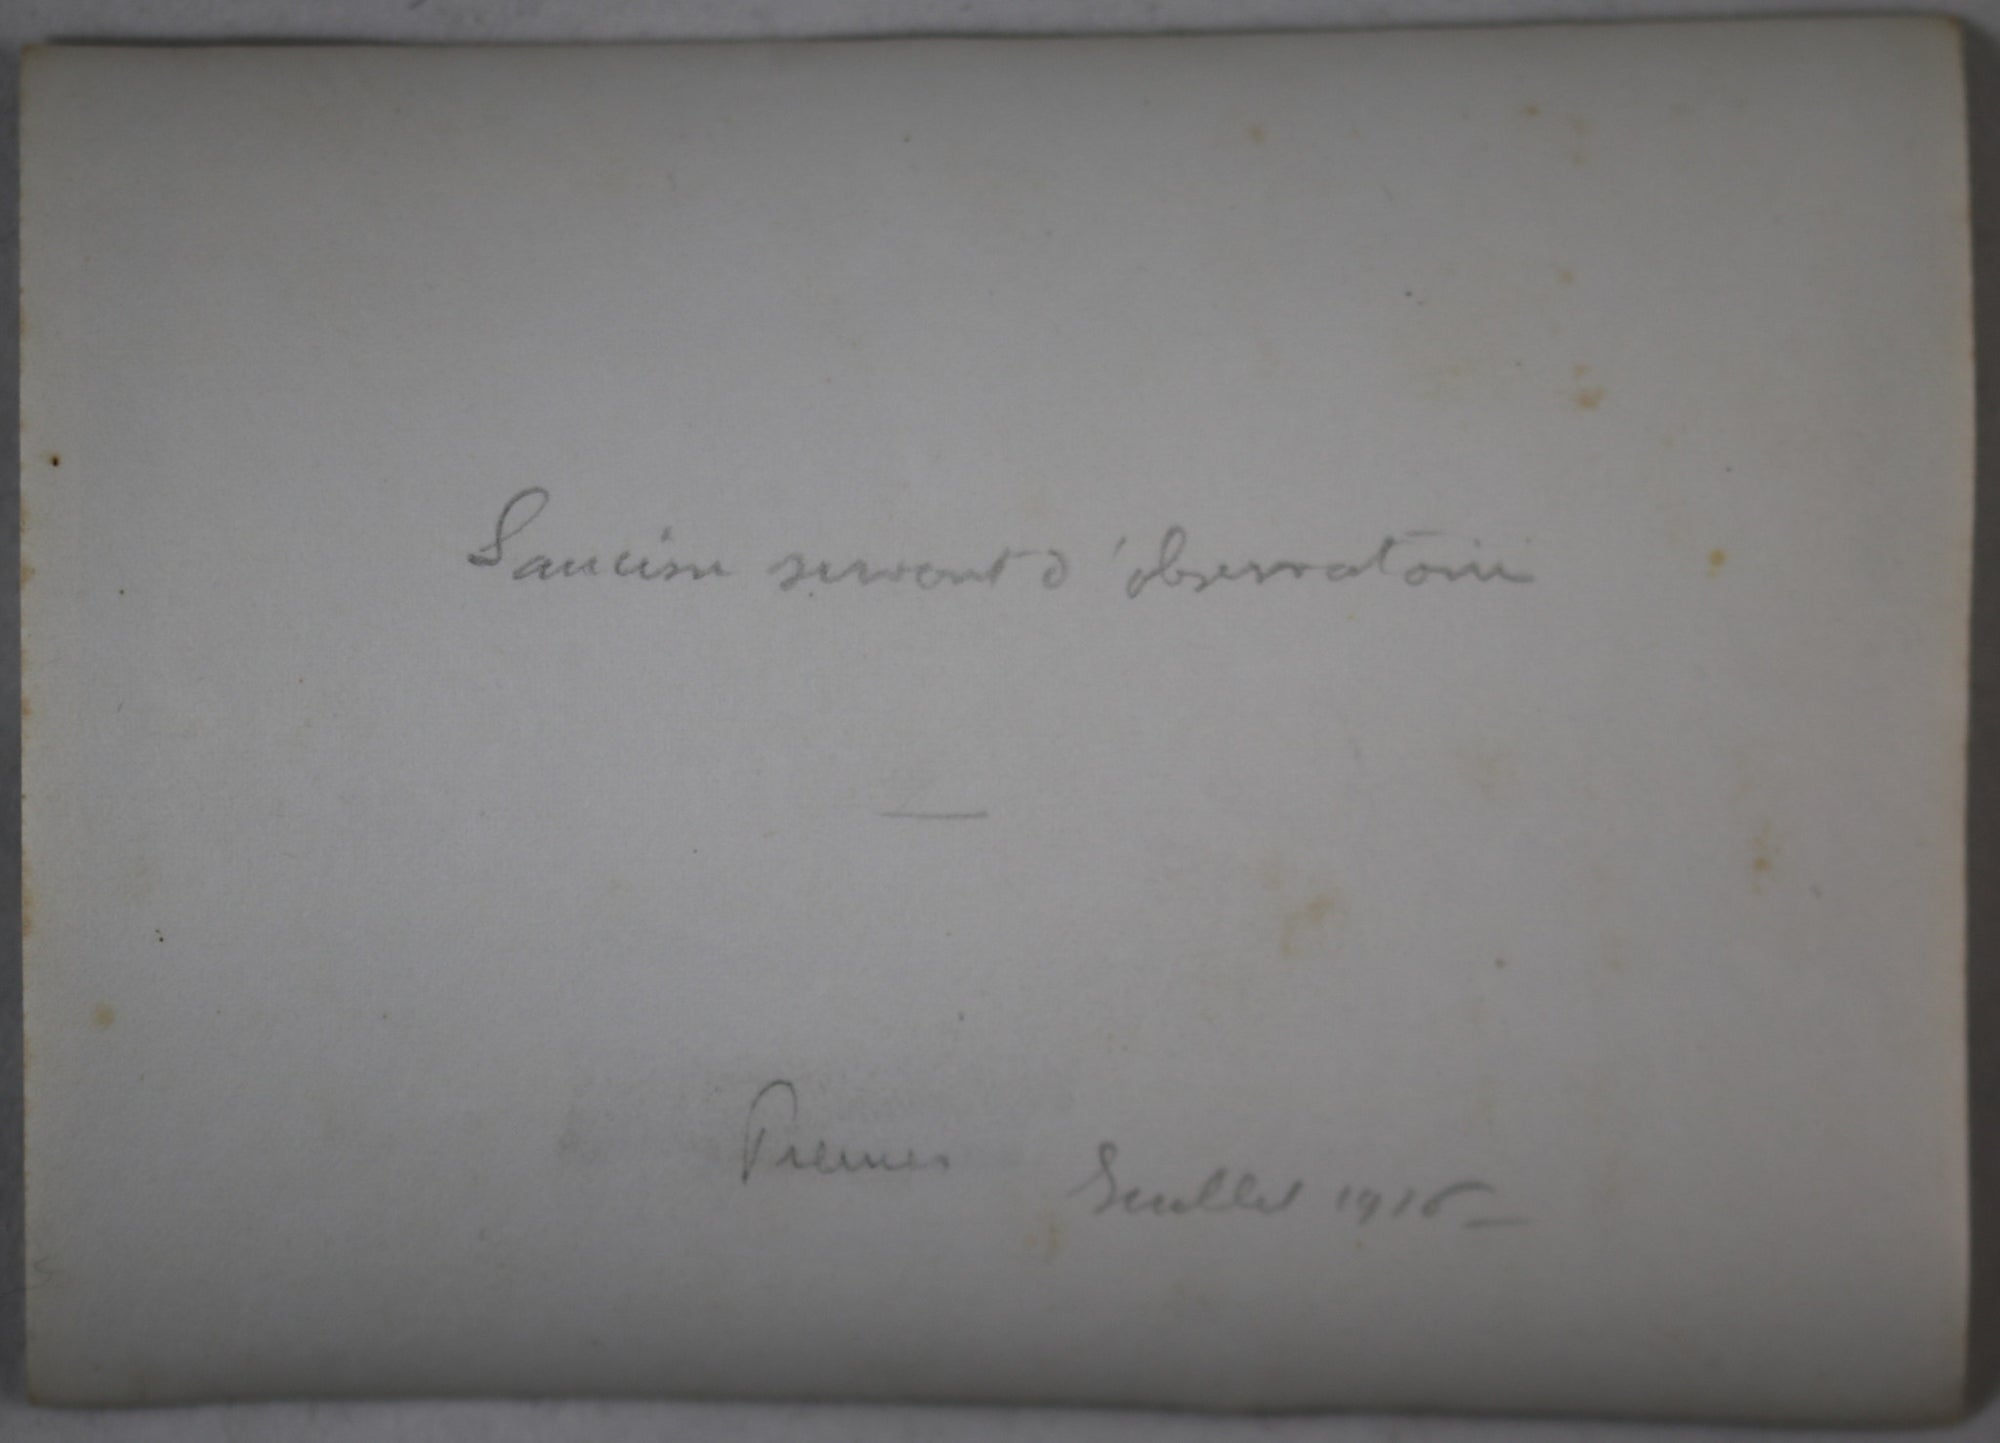 Saucisse servant d'observatoire
Juillet 1916